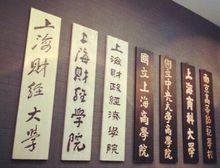 上海财经大学
上海财经学院
上海财政經濟學院
國立上海商學院
國立中央大學商學院
上海商科大學